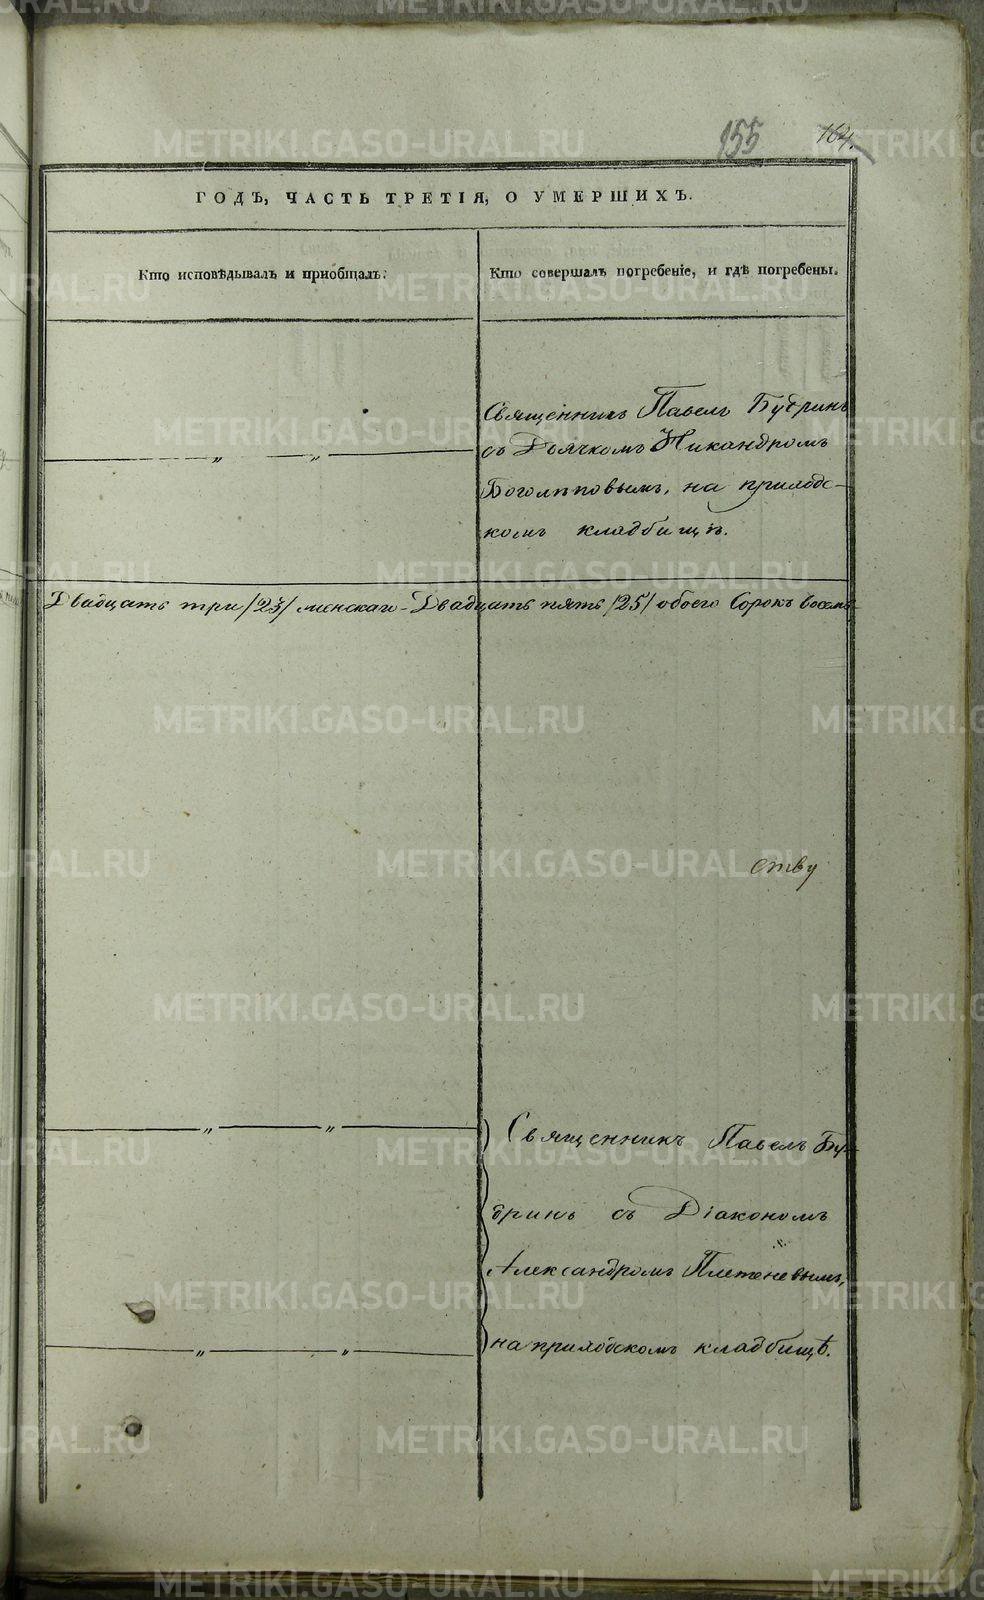 155 164.
ГОДЪ, ЧАСТЬ ТРЕТІЯ, О УМЕРШИХЪ.
Кто исповѣдывалъ и пріобщалъ.
Кто совершалъ погребеніе, и гдѣ погребены.
Священникъ Павелъ Будринъ
съ Дьячкомъ Никандромъ
Боголѣповымъ, на приход-
скомъ кладбищѣ.
Двадцать три /23/ женскаго - Двадцать пять /25/ обоего Сорокъ восемь
ству
Священникъ Павелъ Бу-
дринъ съ Діакономъ
Александромъ Плетеневымъ,
на приходскомъ кладбищѣ.
METRIKI.GASO-URAL.RU